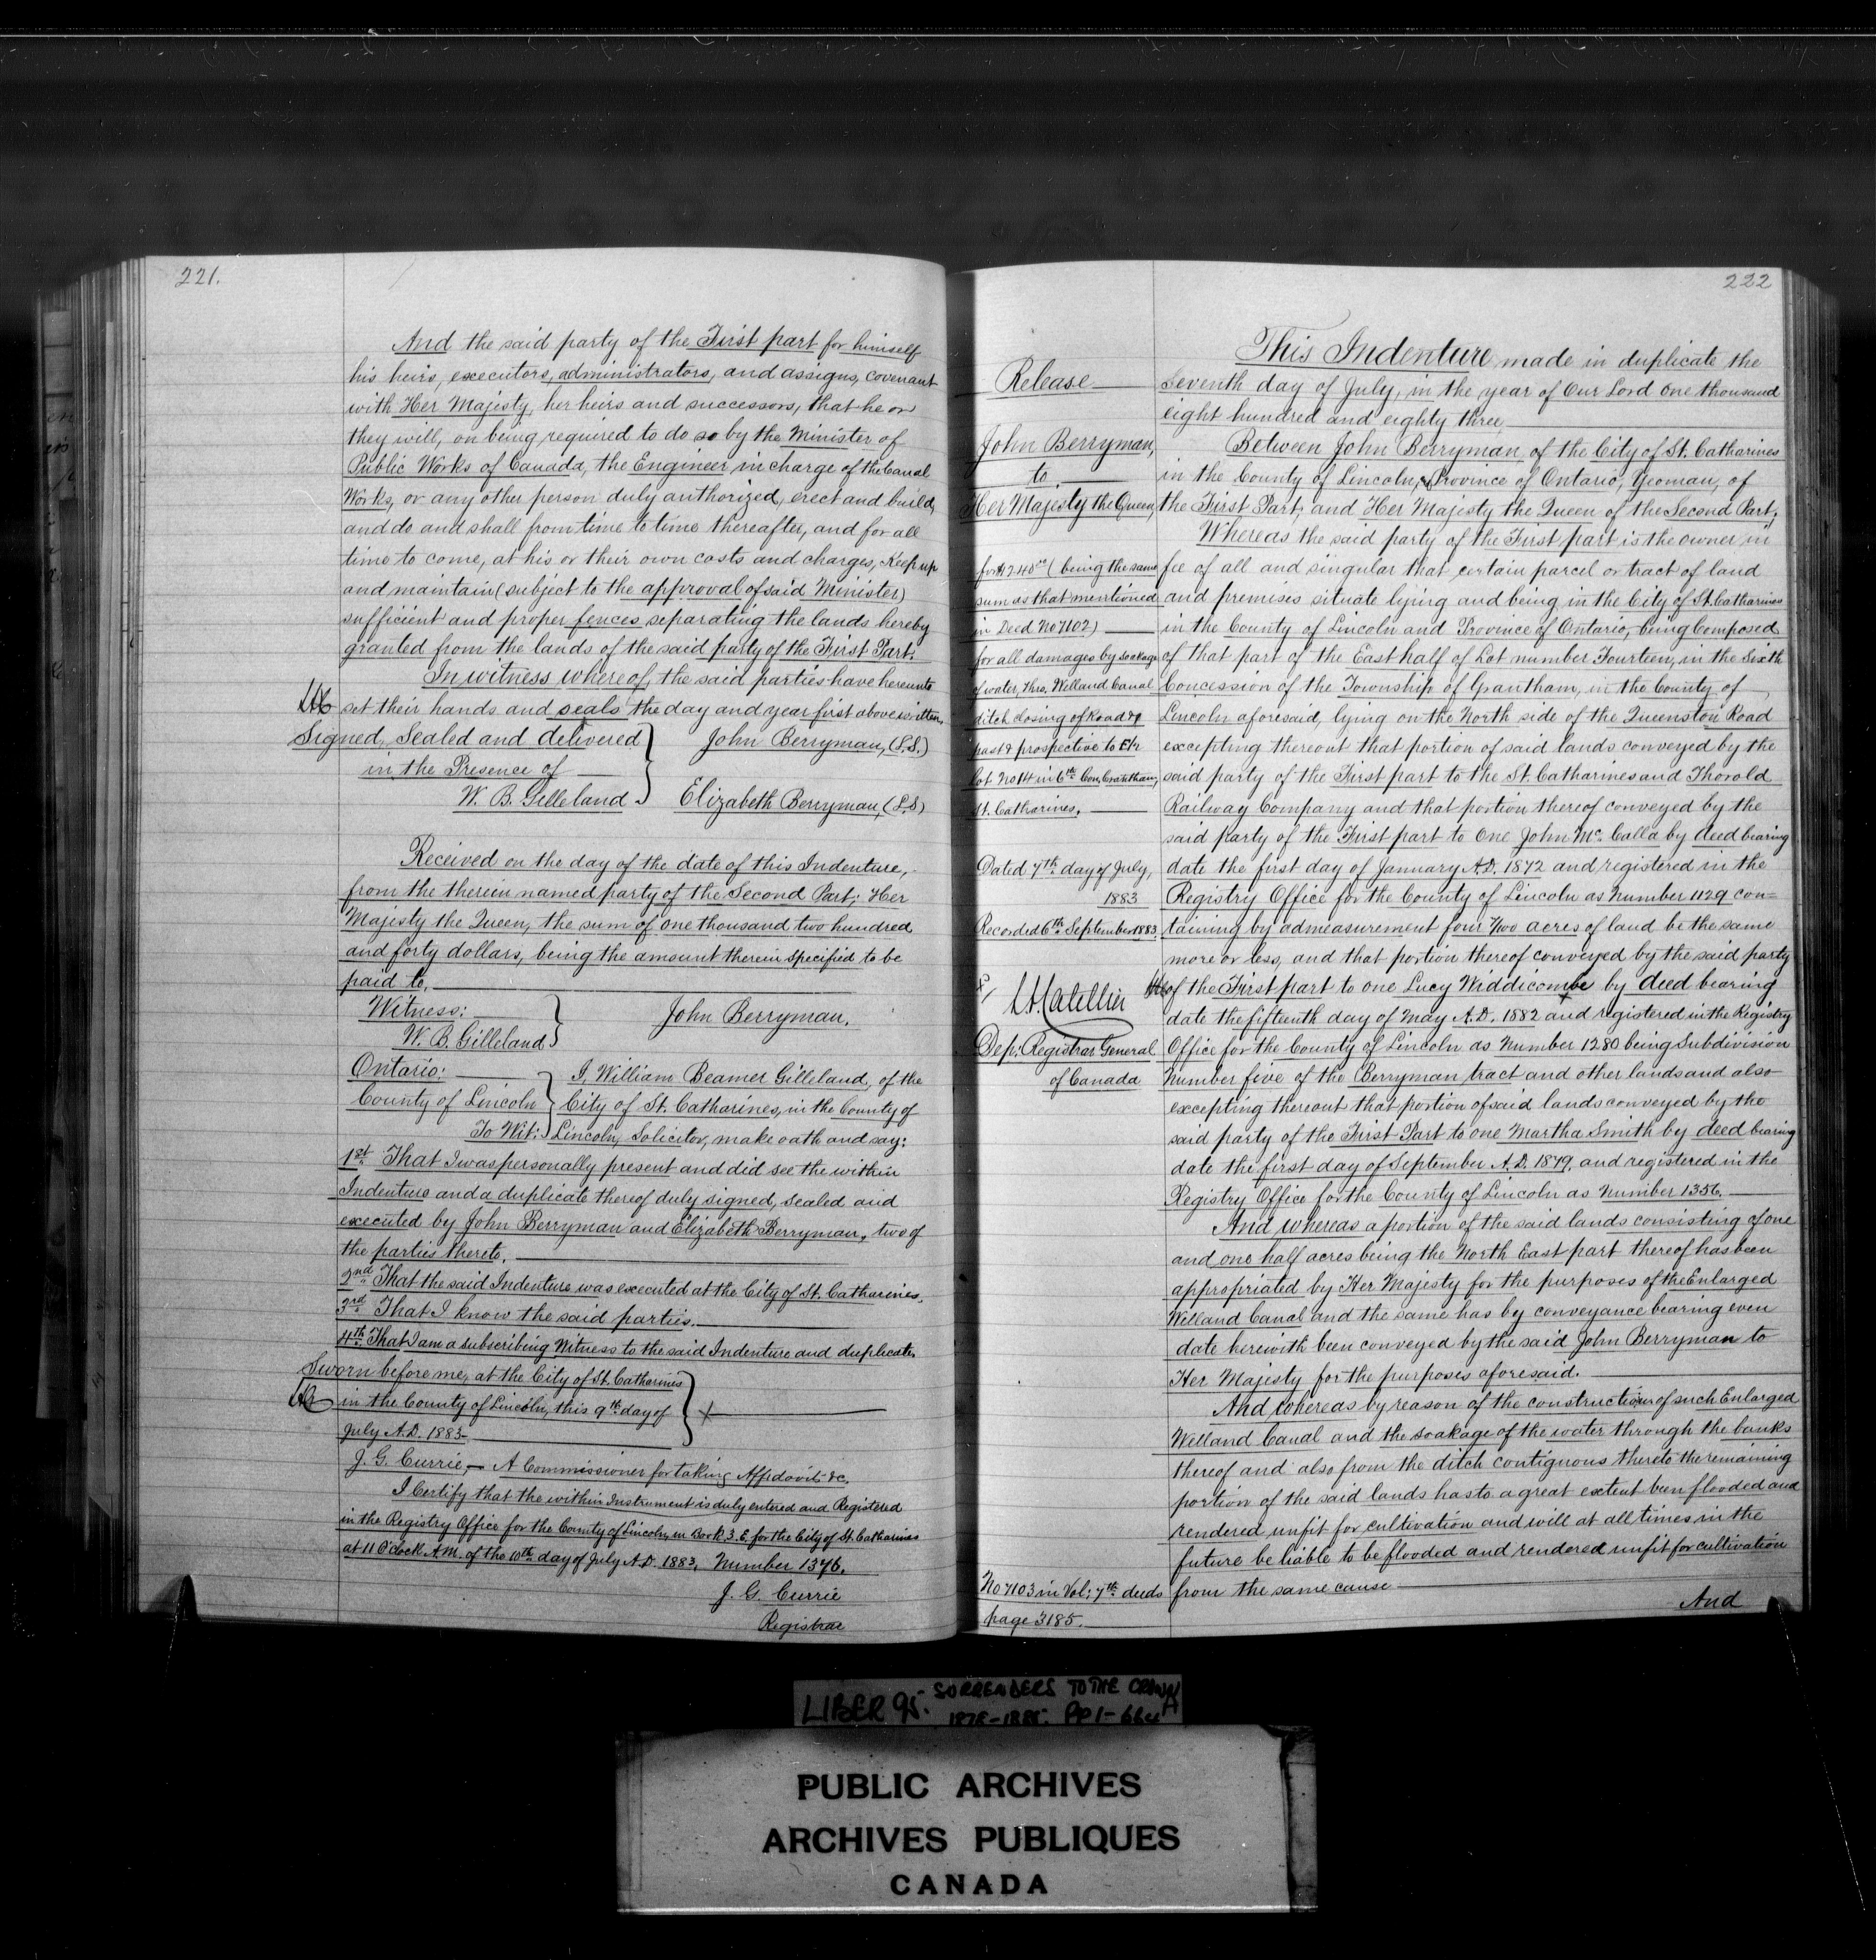 221.
And the said party of the First part for himself
his heirs, executors, administrators, and assigns, covenant
with Her Majesty, her heirs and successors, that he or
they will, on being required to do so by the Minister of
Public Works of Canada, the Engineer in charge of the Canal
Works, or any other person duly authorized, erect and build,
and do and shall from time to time thereafter, and for all
time to come, at his or their own costs and charges, Keep up
and maintain (subject to the approval of said Minister)
sufficient and proper fences separating the lands hereby
granted from the lands of the said party of the First Part.
In witness whereof, the said parties have hereunto
set their hands and seals the day and year first above written.
Signed, Sealed and delivered
in the Presence of
W. B. Gilleland
John Berryman, (L.S.)
Elizabeth Berryman, (L.S)
Received on the day of the date of this Indenture,
from the therein named party of the Second Part; Her
Majesty the Queen, the sum of one thousand two hundred
and forty dollars, being the amount therein specified to be
paid to.
Witness:
W. B. Gilleland
John Berryman.
Ontario:
County of Lincoln
To Wit:
I, William Beamer Gilleland, of the
City of St. Catharines, in the County of
Lincoln, Solicitor, make oath and say:
1st That I was personally present and did see the within
Indenture and a duplicate thereof duly signed, sealed and
executed by John Berryman and Elizabeth Berryman, two of
the parties thereto.
2nd That the said Indenture was executed at the City of St. Catharines.
3rd That I know the said parties.
4th That I am a subscribing Witness to the said Indenture and duplicate.
Sworn before me, at the City of St. Catharines
in the County of Lincoln, this 9th day of
July A.D. 1883
J. G. Currie, A Commissioner for taking Affidavits &c.
I Certify that the within Instrument is duly entered and Registered
in the Registry Office for the County of Lincoln, in Book 3. E. for the City of St. Catharines
at 11 O'Clock A.M. of the 10th day of July A.D. 1883, Number 1376.
J. G. Currie
Registrar
222
Release
John Berryman,
to
Her Majesty the Queen,
for $1240 00 (being the same
sum as that mentioned
in Deed No 7102)
for all damages by soakage
of water, thro. Welland Canal
ditch closing of Road &c
past & prospective to E½
Lot No 14 in 6th Con, Grantham,
St. Catharines.
Dated 7th day of July,
1883
Recorded 6th September 1883.
Dep: Registrar General
of Canada
No 7103 in Vol: 7th deeds
page 3185.
This Indenture made in duplicate the
Seventh day of July, in the year of Our Lord One thousand
eight hundred and eighty three
Between John Berryman of the City of St. Catharines
in the County of Lincoln, & Province of Ontario, Yeoman, of
the First Part; and Her Majesty the Queen of the Second Part;
Whereas the said party of the First part is the owner in
fee of all and singular that certain parcel or tract of land
and premises situate lying and being in the City of St. Catharines
in the County of Lincoln and Province of Ontario, being Composed
of that part of the East half of Lot number Fourteen, in the Sixth
Concession of the Township of Grantham, in the County of
Lincoln aforesaid, lying on the North side of the Queenston Road
excepting thereout that portion of said lands conveyed by the
said party of the First part to the St. Catharines and Thorold
Railway Company and that portion thereof conveyed by the
said party of the First part to One John Mc Calla by deed bearing
date the first day of January A.D. 1872 and registered in the
Registry Office for the County of Lincoln as Number 1129 con=
taining by admeasurement four 7/100 acres of land be the same
more or less, and that portion thereof conveyed by the said party
of the First part to one Lucy Widdicombe by deed bearing
date the fifteenth day of May A.D. 1882 and registered in the Registry
Office for the County of Lincoln as Number 1280 being Subdivision
Number five of the Berryman tract and other lands and also
excepting thereout that portion of said lands conveyed by the
said party of the First Part to one Martha Smith by deed bearing
date the first day of September A.D. 1879. and registered in the
Registry Office for the County of Lincoln as Number 1356.
And whereas a portion of the said lands consisting of one
and one half acres being the North East part thereof has been
appropriated by Her Majesty for the purposes of the Enlarged
Welland Canal and the same has by conveyance bearing even
date herewith been conveyed by the said John Berryman to
Her Majesty for the purposes aforesaid.
And whereas by reason of the construction of such Enlarged
Welland Canal and the soakage of the water through the banks
thereof and also from the ditch contiguous thereto the remaining
portion of the said lands has to a great extent been flooded and
rendered unfit for cultivation and will at all times in the
future be liable to be flooded and rendered unfit for cultivation
from the same cause
And
LIBER 95. SURRENDERS TO THE CROWN
PUBLIC ARCHIVES
ARCHIVES PUBLIQUES
CANADA